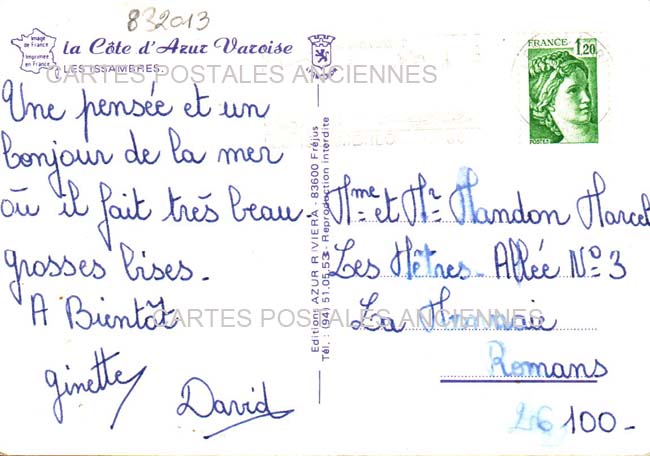 832013
Image
de France
Imprimée
en France
la Côte d'Azur Varoise
LES ISSAMBRES.
CARTES POSTALES ANCIENNES
FRANCE 1,20
POSTES
Une pensée et un
bonjour de la mer
où il fait très beau.
grosses bises.
A Bientôt
Ginette
David
Editions AZUR RIVIERA - 83600 Fréjus
Tél. : (94) 51.05.53 - Reproduction interdite
Mme et Mr Mandon Marcel
Les Hêtres - Allée No 3
La
Romans
26 100 -
CARTES POSTALES ANCIENNES